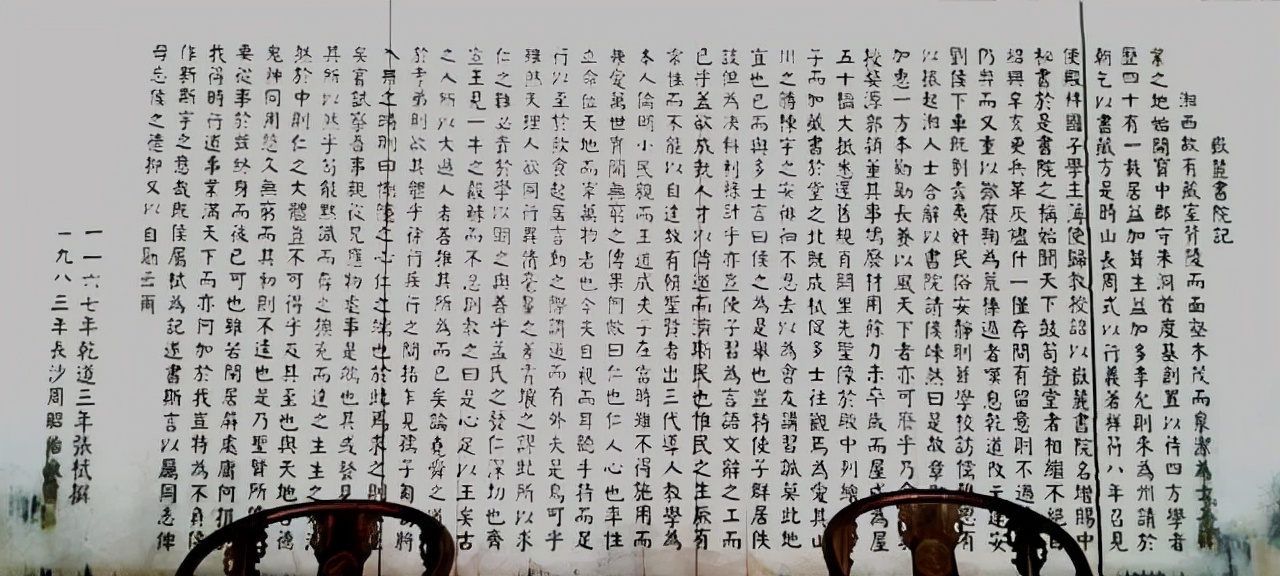 嶽麓書院記
湘西故有藏室背陵而面壑木茂而泉潔為士子肄
業之地始開寶中郡守朱洞首度基創置以待四方學者
歷四十有一載居益加葺生益加多李允則來為州請於
朝乞以書藏方是時山長周式以行義著祥符八年召見
便殿拜國子學主簿使歸教授詔以嶽麓書院名增賜中
秘書於是書院之稱始聞天下鼓笥登堂者相繼不絕自
紹興辛亥更兵革灰燼什一僅存間有留意則不過
仍弊而又重以撤廢鞠為荒榛過者嘆息乾道改元建安
劉侯下車既剔蠹夷奸民俗安靜則葺學校訪儒雅思有
以振起湘人士合辭以書院請侯竦然曰是故章
加惠一方來勸勵長養以風天下者亦可廢乎乃命
授婺源邵穎董其事鳩廢材用餘力未卒歲而屋成為屋
五十楹大抵悉還舊規肖闕里先聖像於殿中列繪
子而加藏書於堂之北既成栻從多士往觀焉為愛其山
川之勝棟宇之安徘徊不忍去以為會友講習誠莫此地
宜也已而與多士言曰侯之為是舉也豈特使子群居佚
談但為決科利祿計乎亦豈使子習為言語文辭之工而
已乎蓋欲成就人才以傳道而濟斯民也惟民之生厥有
常性而不能以自達故有賴聖賢者出三代導人教學為
本人倫明小民親而王道成夫子在當時雖不得施用而
兼愛萬世實開無窮之傳果何歟曰仁也仁人心也率性
立命位天地而宰萬物者也今夫目視而耳聽手持而足
行以至於飲食起居言動之際謂道而有外夫是烏可乎
雖然天理人欲同行異情毫釐之差霄壤之謬此所以求
仁之難必貴於學以明之與善乎孟氏之發仁深切也齊
宣王見一牛之觳觫而不忍則教之曰是心足以王矣古
之人所以大過人者善推其所為而已矣論堯舜之道
於孝弟則欲其體乎徐行疾行之間指乍見孺子匍匐將
入井之時則曰惻隱之心仁之端也於此焉求之則
矣嘗試察吾事親從兄應物處事是端也其或發見
其所以然乎苟能默識而存之擴充而達之生生之
然於中則仁之大體豈不可得乎及其至也與天地合德
鬼神同用悠久無窮而其初則不遠也是乃聖賢所
要從事於茲終身而後已可也雖若閒居屏處庸何損
我得時行道事業滿天下而亦何加於我豈特為不負侯
作斯宇之意哉既侯屬栻為記遂書斯言以屬同志俾
毋忘侯之德抑又以自勵云爾
一一六七年乾道三年張栻撰
一九八三年長沙周昭怡